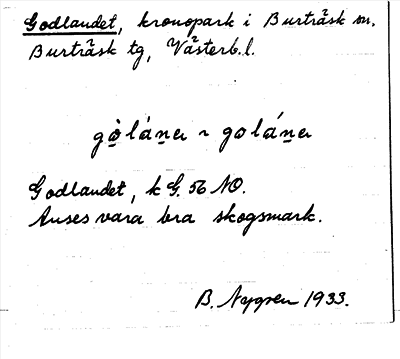 Godlandet, kronopark i Burträsk sn,
Burträsk tg, Västerb. l.
gò̱láṉeꞛ ~ goláṉeꞛ
Godlandet, k G. 56 NO.
Anses vara bra skogsmark.
B. Nygren 1933.